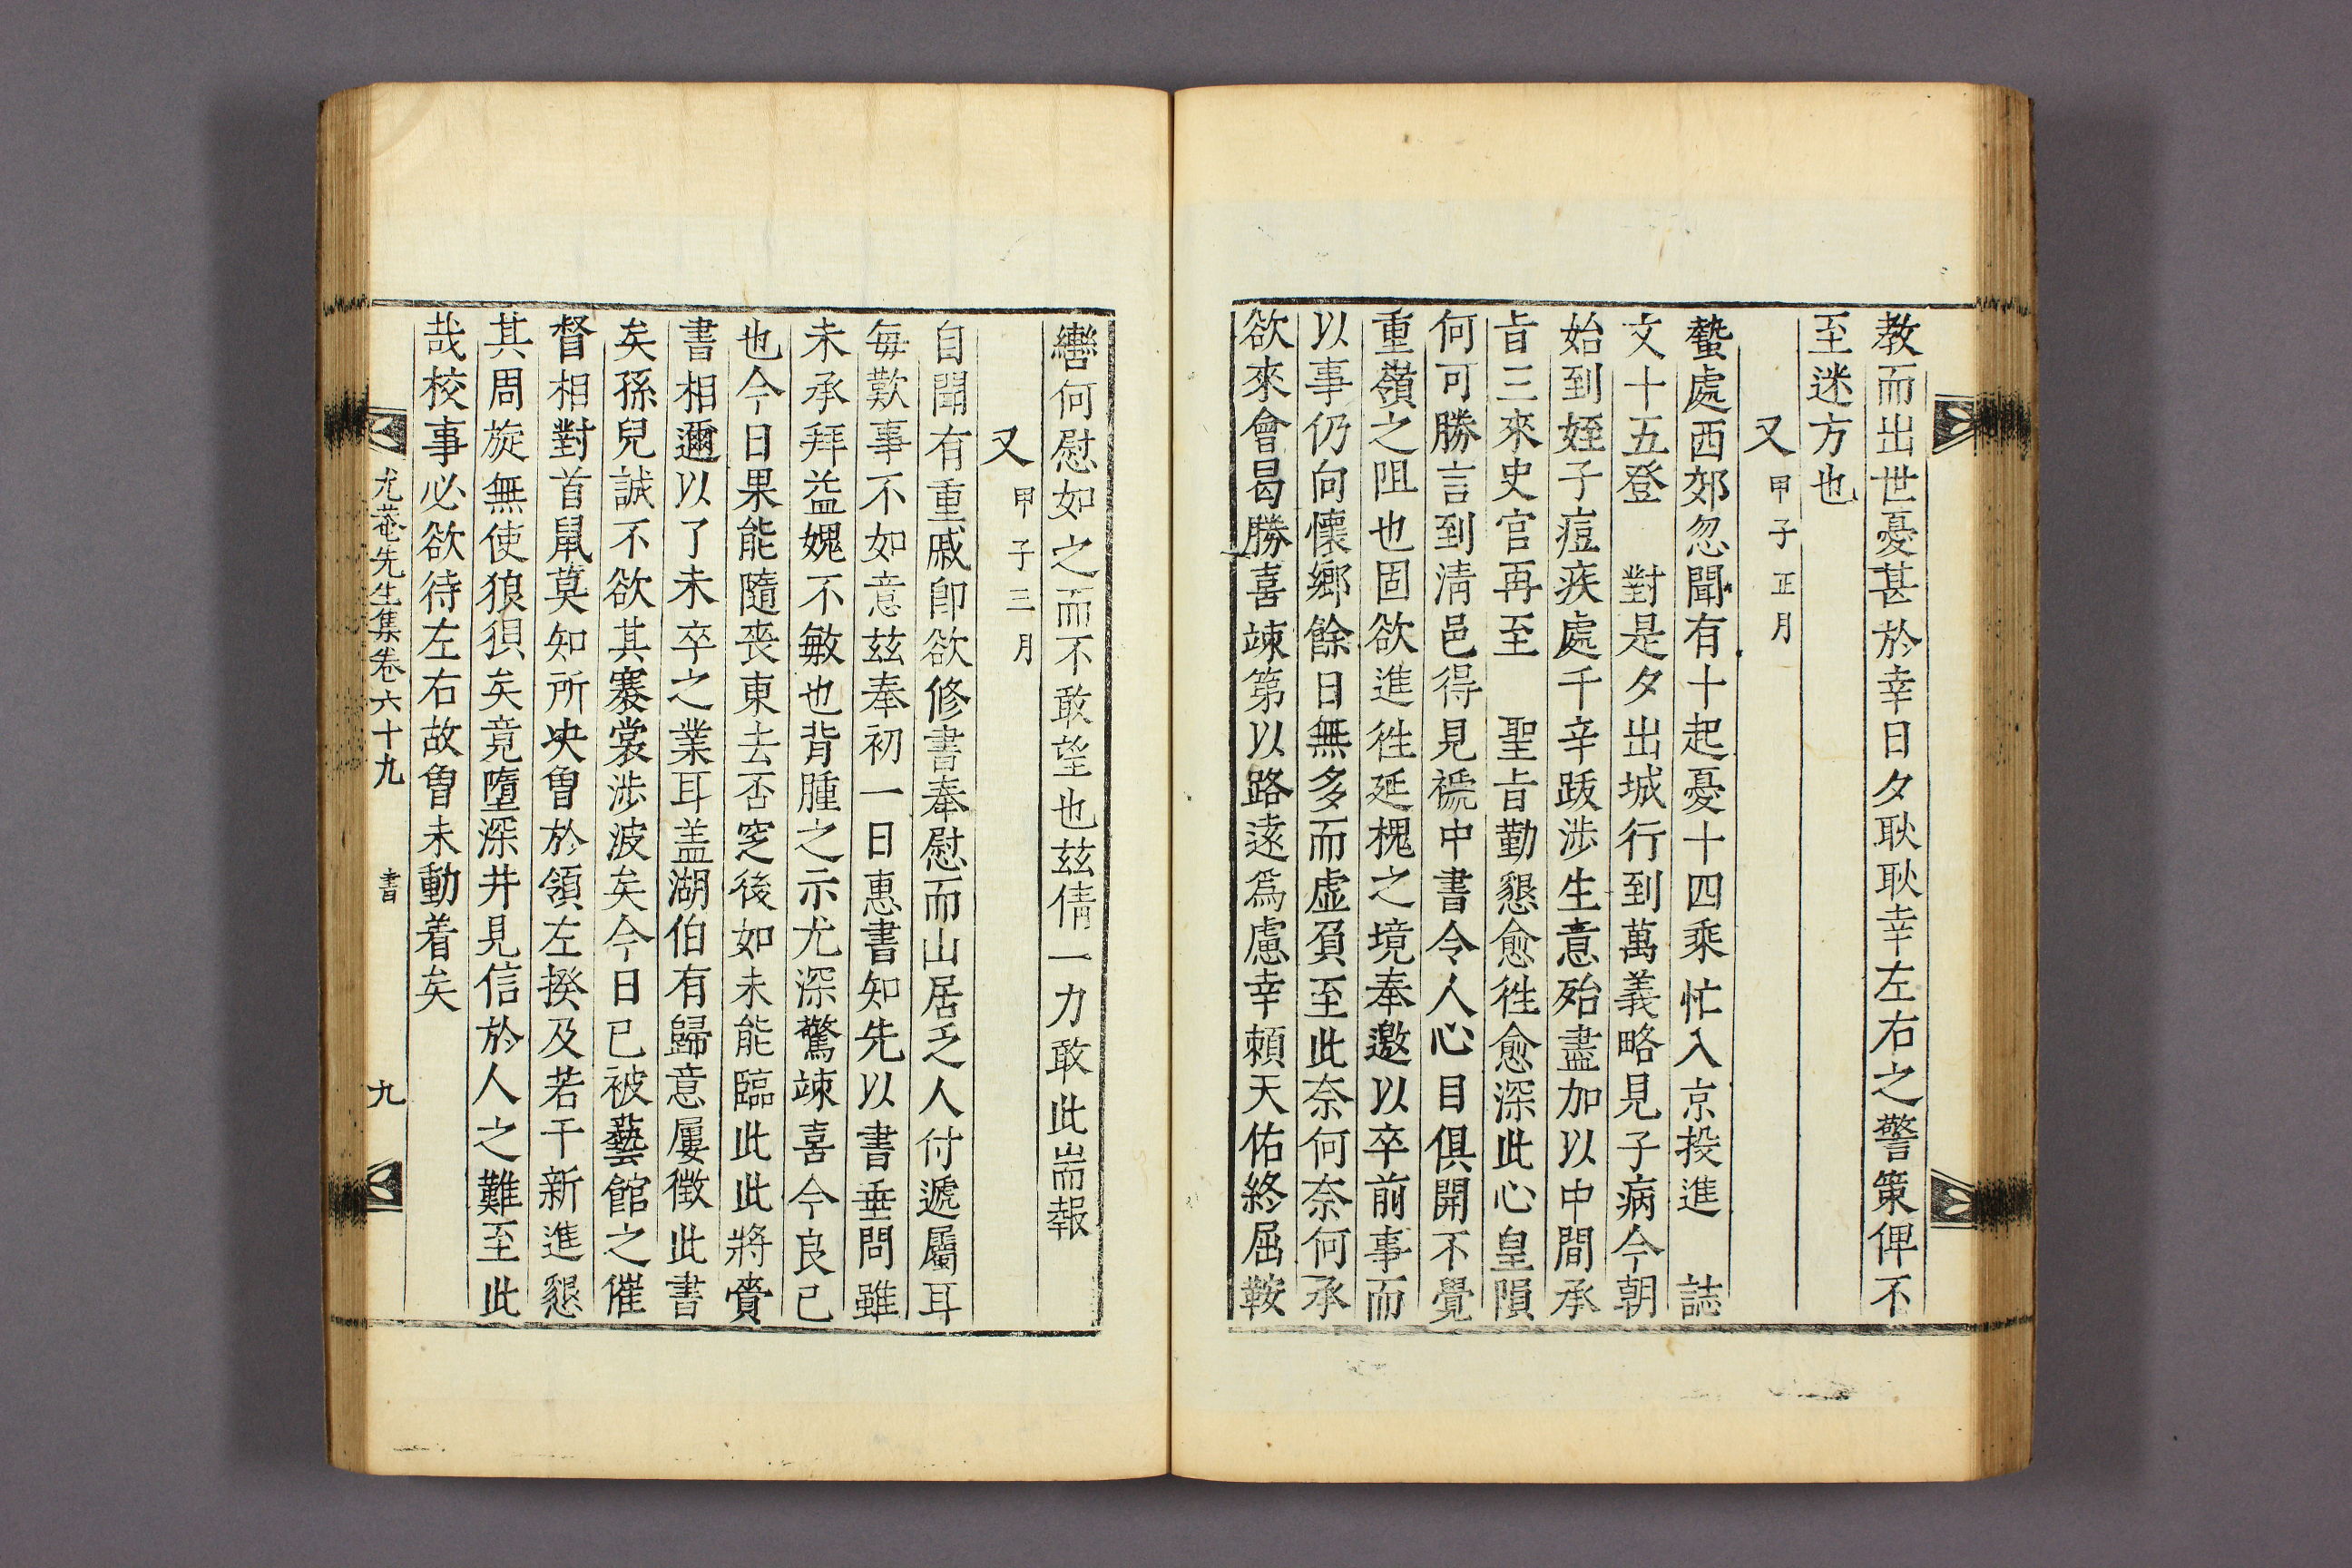 教而出世憂甚於幸日夕耿耿幸左右之警策俾不
至迷方也
又甲子正月
蟄處西郊忽聞有十起憂十四乘忙入京投進 誌
文十五登 對是夕出城行到萬義略見子病今朝
始到姪子痘疾處千辛跋涉生意殆盡加以中間承
旨三來史官再至 聖旨勤懇愈徃愈深此心皇隕
何可勝言到淸邑得見褫中書令人心目俱開不覺
重嶺之阻也固欲進徃延槐之境奉邀以卒前事而
以事仍向懷鄉餘日無多而虛負至此奈何奈何承
欲來會曷勝喜竦第以路遠爲慮幸賴天佑終屈鞍
轡何慰如之而不敢望也茲倩一力敢此耑報
又甲子三月
自聞有重戚卽欲修書奉慰而山居乏人付遞屬耳
每歎事不如意茲奉初一日惠書知先以書垂問雖
未承拜益媿不敏也背腫之示尤深驚竦喜今良已
也今日果能隨喪東去否窆後如未能臨此此將賫
書相邇以了未卒之業耳盖湖伯有歸意屢徵此書
矣孫兒誠不欲其褰裳涉波矣今日已被藝館之催
督相對首鼠莫知所決曾於領左揆及若干新進懇
其周旋無使狼狽矣竟墮深井見信於人之難至此
哉校事必欲待左右故曾未動着矣
尤菴先生集卷六十九 書 九